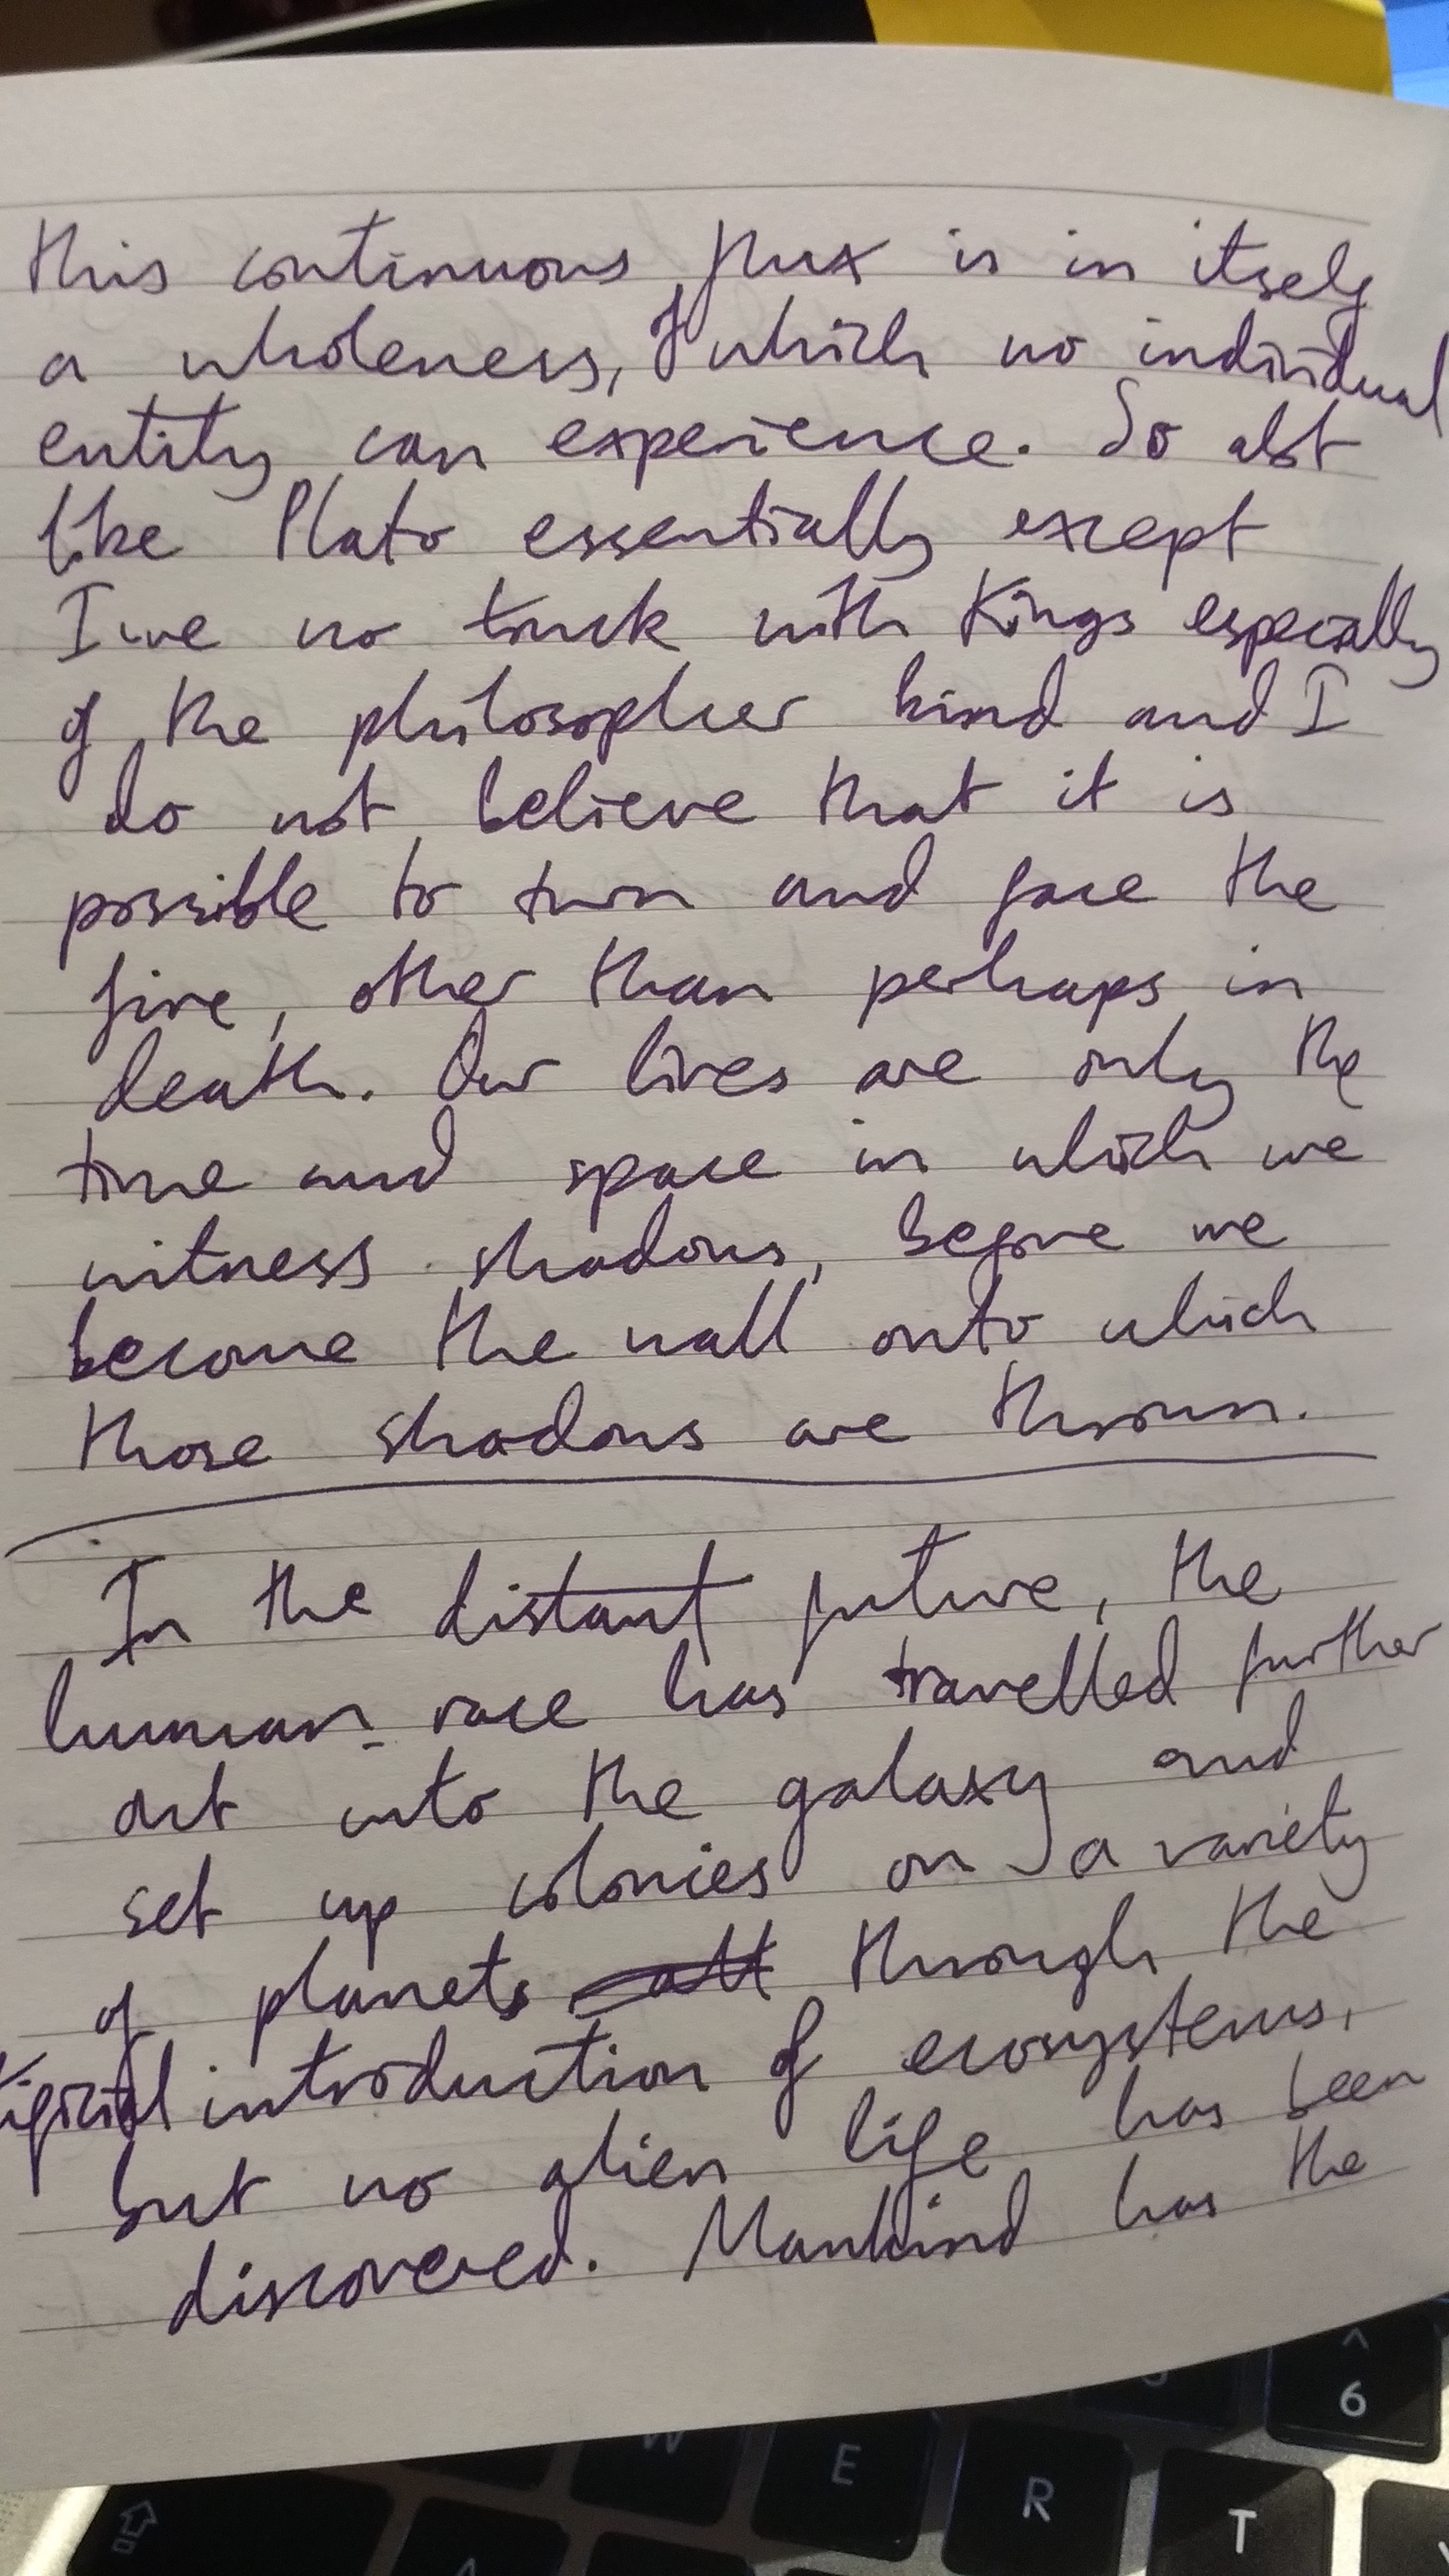 this continuous flux is in itself
a wholeness, of which no individual
entity can experience. So alot
like Plato essentially except
I've no truck with Kings especially
of the philosopher kind and I
do not believe that it is
possible to turn and face the
fire, other than perhaps in
death. Our lives are only the
time and space in which we
witness shadows, before we
become the wall onto which
those shadows are thrown.
In the distant future, the
human race has travelled further
out into the galaxy and
set up colonies on a variety
of planets through the
introduction of ecosystems,
but no alien life has been
discovered. Mankind has the
^
6
W
E
R
T